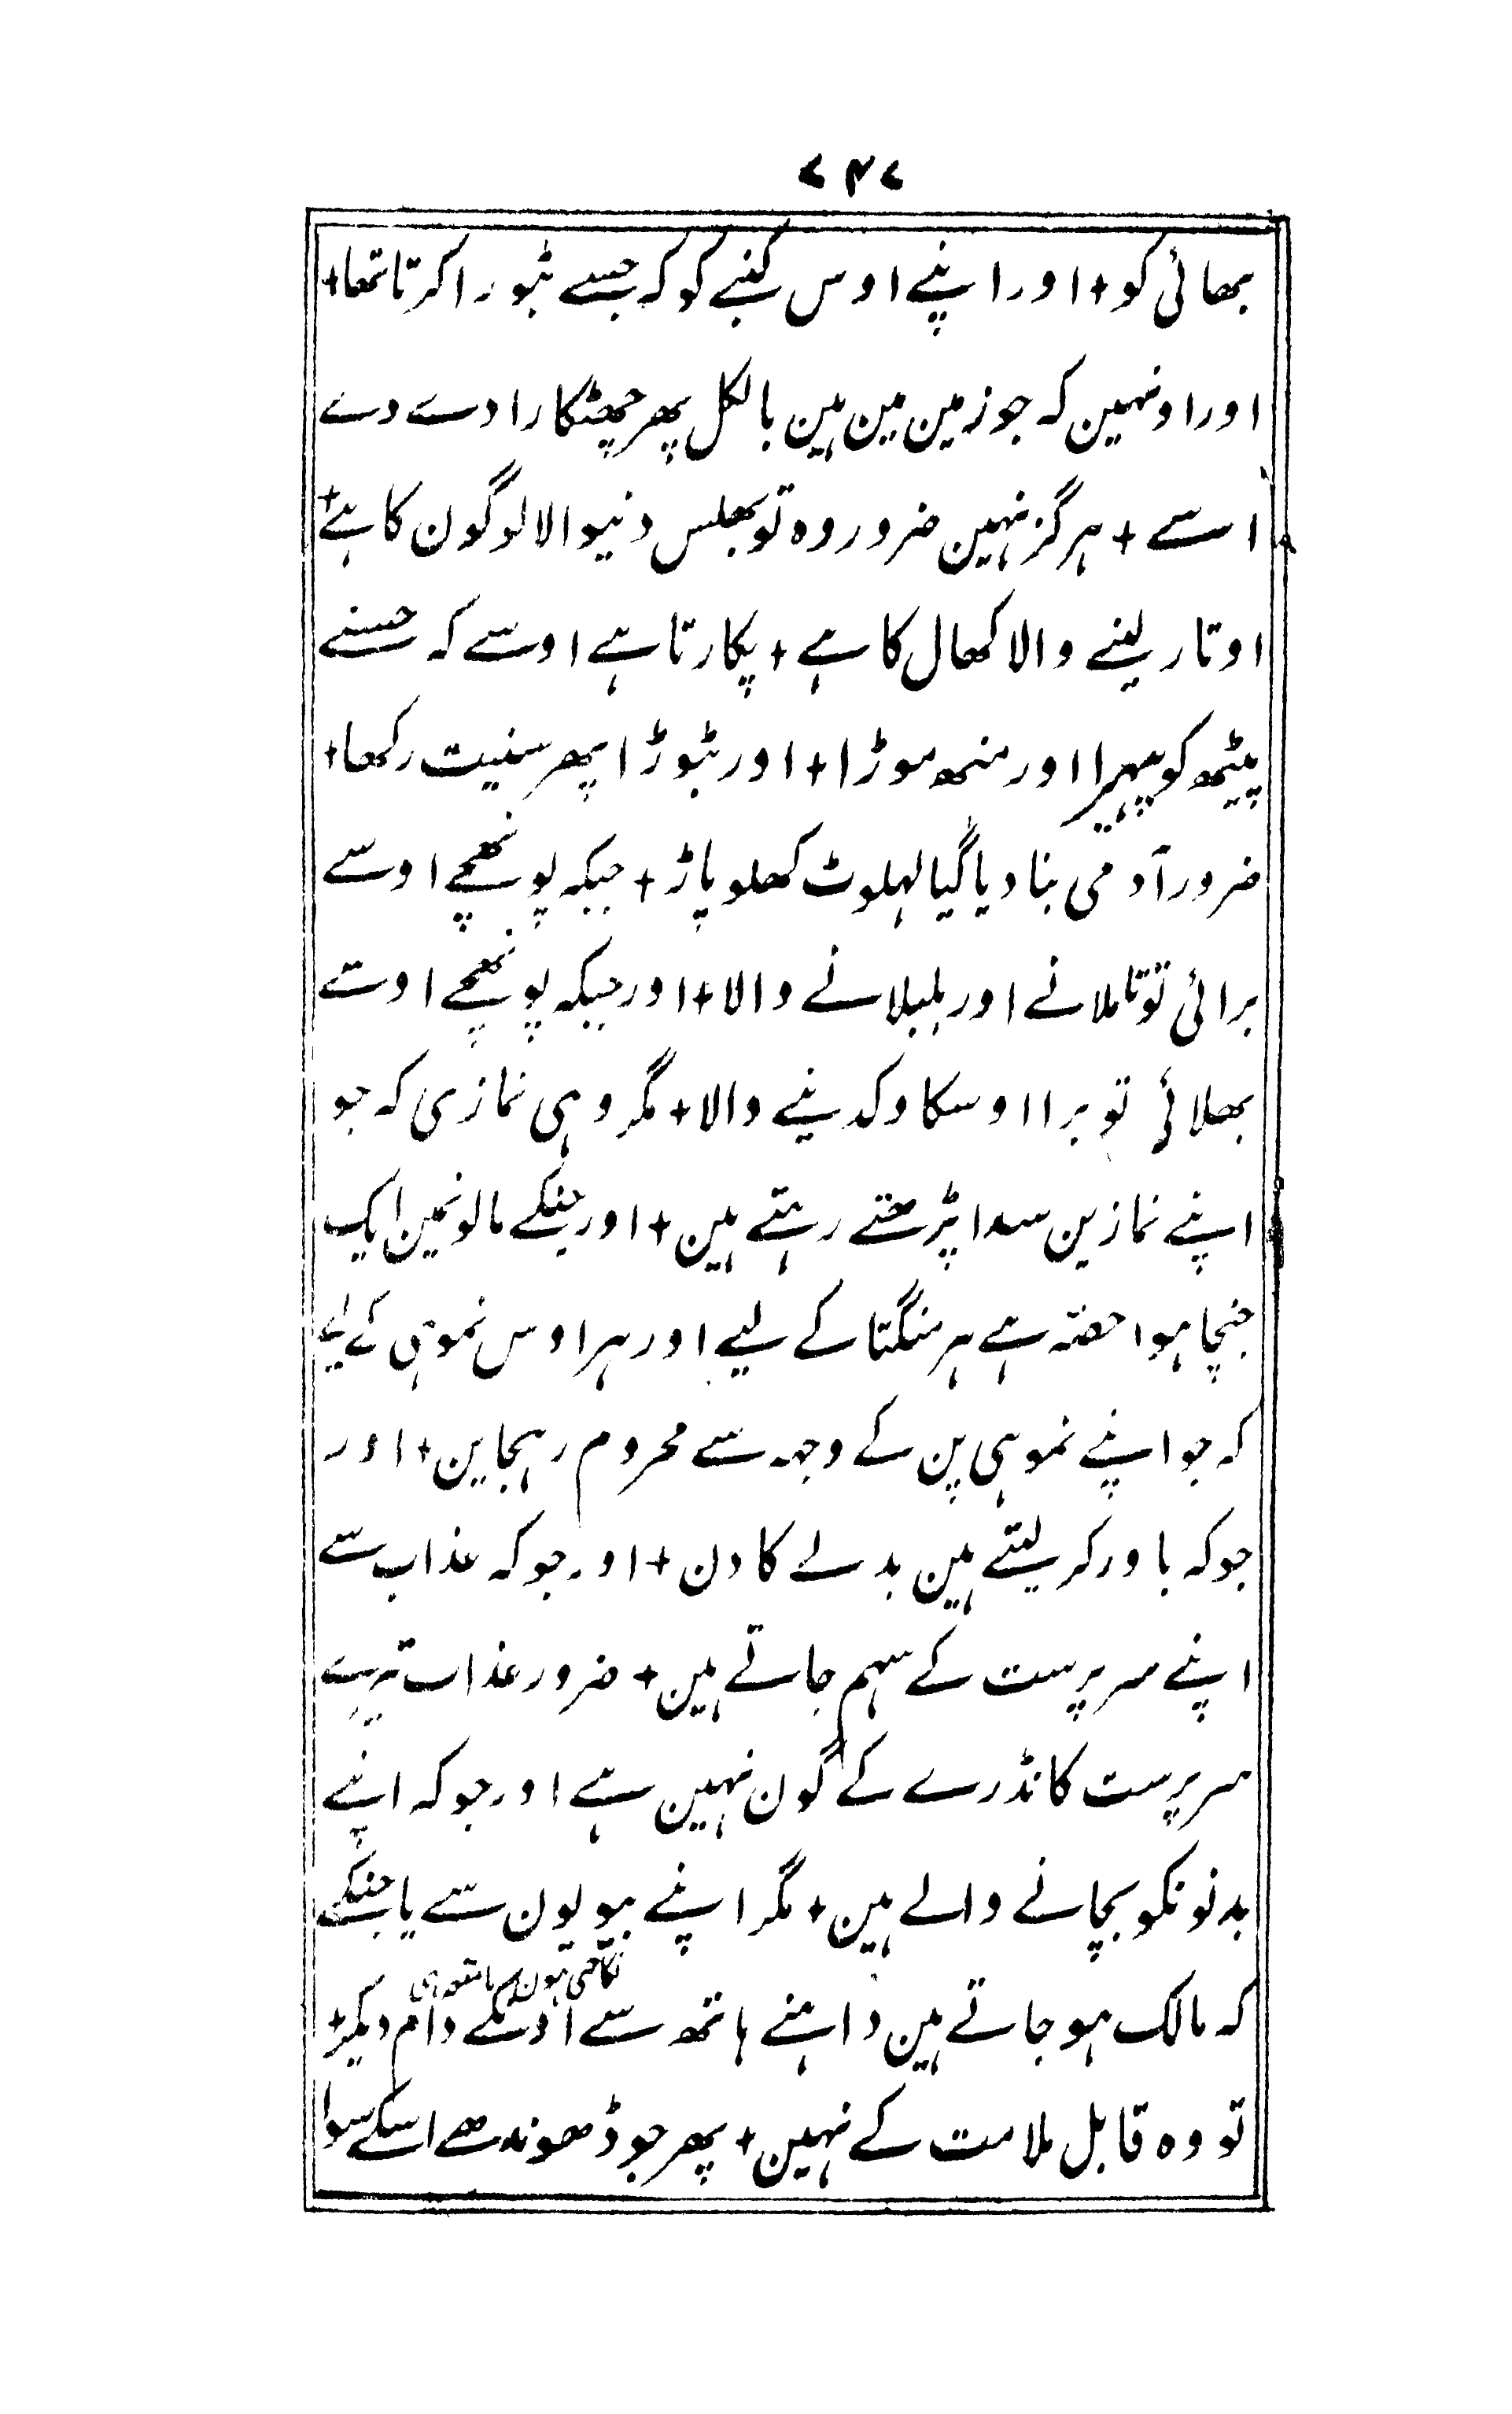 ۷۴۷
بھائی کو + اور اپنے اوس کنبے کو کہ جسے بٹورا کرتا تھا +
اور اونہین کہ جو زمین مین ہین بالکل پھر چھٹکارا دے دے
اسے + ہرگز نہین ضرور وہ تو بھلس دنیوالا لوگون کا ہے +
اوتار لینے والا کھال کا ہے + پکارتا ہے اوسے کہ جسنے
پیٹھ کو پھیرا اور منھ موڑا + اور بٹوڑا پھر سنیت رکھا +
ضرور آدمی بنا دیا گیا لہلوٹ کھلو پاڑ + جبکہ پونھچے اوسے
برائی تو تلملانے اور بلبلانے والا + اور جبکہ پونھچے اوسے
بھلائی تو برا اوسکا وکدینے والا + مگر وہی نمازی کہ جو
اپنے نمازین سدا پڑھتے رہتے ہین + اور جنکے مالونمین ایک
جنچا ہوا حصّہ ہے ہر منگتا کے لیے اور ہر اوس نموہی کے لیے
کہ جو اپنے نموہی پن کے وجہہ سے محروم رہجاین + اور
جو کہ باور کر لیتے ہین بدلے کا دن + اور جو کہ عذاب سے
اپنے سرپرست کے سہم جاتے ہین + ضرور عذاب تیرے
سرپرست کا نڈرے کے گون نہین ہے اور جو کہ اپنے
بدنونکو بچانے والے ہین + مگر اپنے بیویون سے یا جنکے
کہ مالک ہو جاتے ہین داہنے ہاتھ سے اونکے دام دیکر +
تو وہ قابل ملامت کے نہین + پھر جو ڈھوندھے اسکے سوا